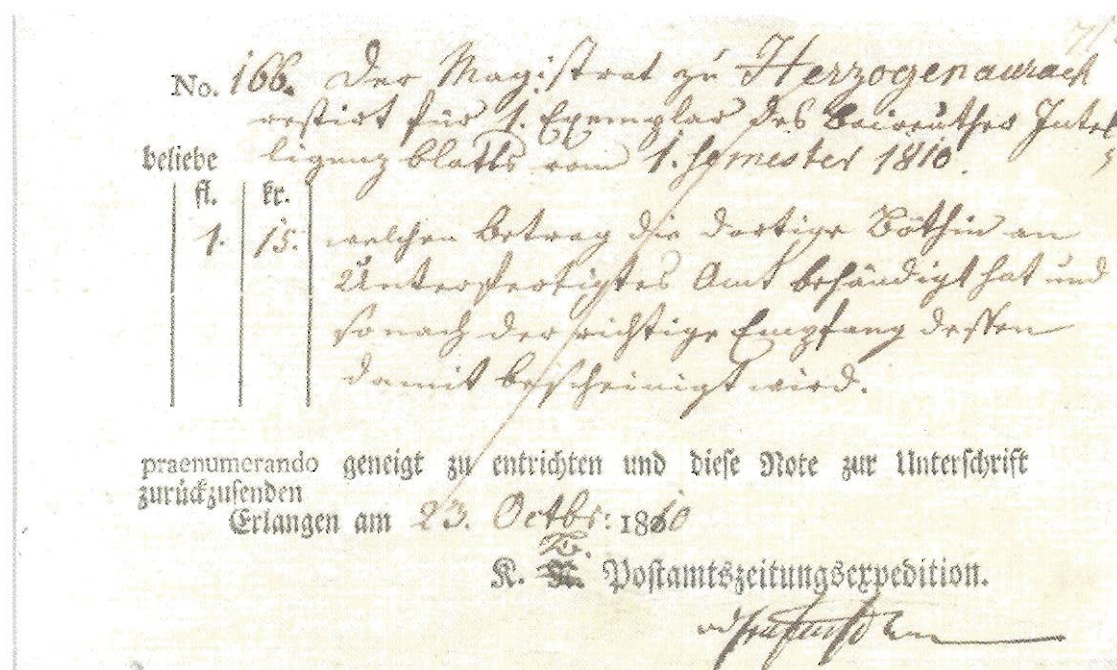 No. 166. Der Magistrat zu Herzogenaurach
restirt für 1. Exemplar des Baireuther Intel
beliebe ligenz blatts vom 1. Semester 1810.
fl. kr.
1. 15. welchen Betrag die dortige Böthin an
Unterfertigtes Amt behändigt hat und
sonach der richtige Empfang dessen
damit bescheinigt wird.
praenumerando geneigt zu entrichten und diese Note zur Unterschrift
zurückzusenden
Erlangen am 23. Octbr: 1810
K. B. Postamtszeitungsexpedition.